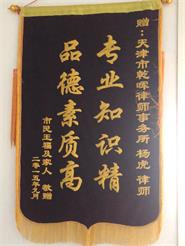 赠：天津市乾晖律师事务所 杨虎 律师
专业知识精
品德素质高
市民王福及家人 敬赠
二零一五年九月